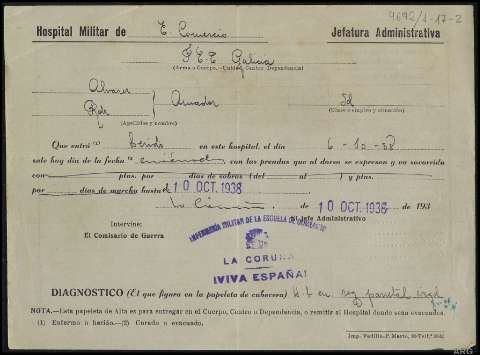 4692/1-17-2
Hospital Militar de E. Comercio Jefatura Administrativa
F.E.T. Galicia
(Arma o Cuerpo.-Unidad, Centro o Dependencia)
Alvarez
Amador Sd
(Clase o empleo y situación)
(Apellidos y nombre)
Que entró (1) herido en este hospital, el día 6-10-38
sale hoy día de la fecha (2) con las prendas que al darse se expresan y va socorrido
con ptas. por días de sobras (del al ) y ptas.
por días de marcha hasta el 10 OCT. 1938
La Coruña de 10 OCT. 1938 de 193
Intervine: El Jefe Administrativo
El Comisario de Guerra
ENFERMERIA MILITAR DE LA ESCUELA DE COMERCIO
LA CORUÑA
¡VIVA ESPAÑA!
DIAGNOSTICO (El que figura en la papeleta de cabecera) parietal
NOTA.—Esta papeleta de Alta es para entregar en el Cuerpo, Centro o Dependencia, o remitir al Hospital donde sean evacuados.
(1) Enfermo o herido.—(2) Curado o evacuado.
ARG